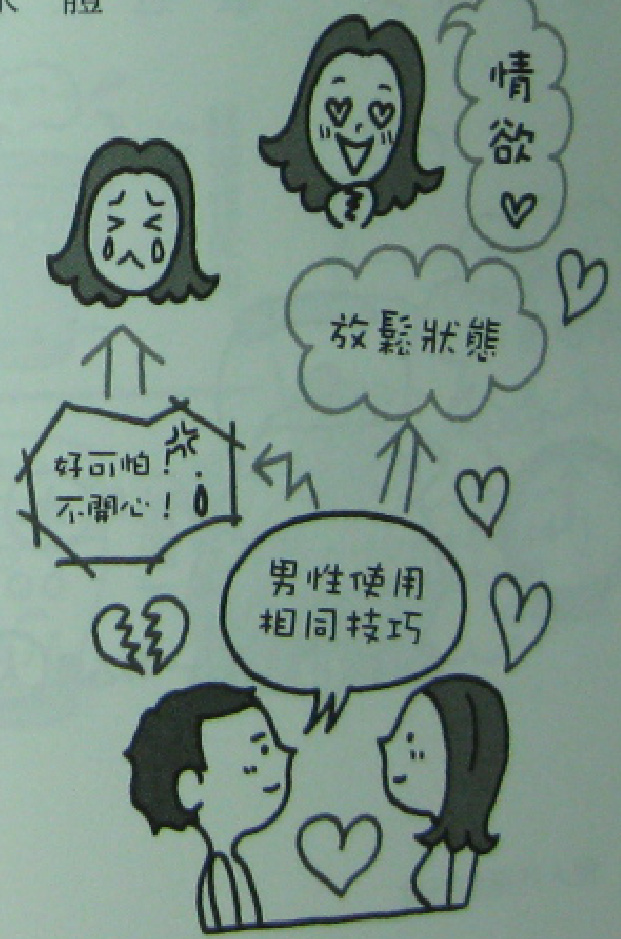 體
情
欲
放鬆狀態
好可怕！
不開心！
男性使用
相同技巧